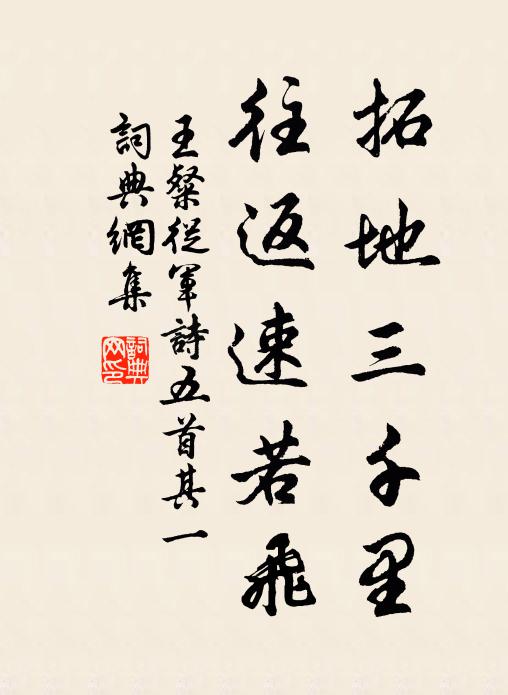 拓地三千里
往返速若飛
王粲從軍詩五首其一
詞典網集
詞典網印